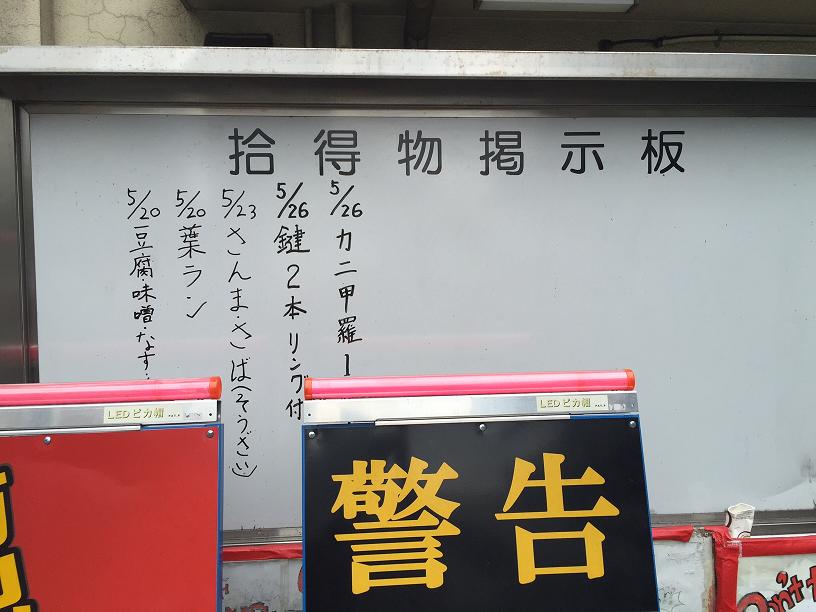 拾得物掲示板
5/26 カニ甲羅1
5/26 鍵2本リング付
5/23 さんま・さば(そうざい)
5/20 葉ラン
5/20 豆腐・味噌・なす・
LEDピカ帽
LEDピカ帽
警告
Don't